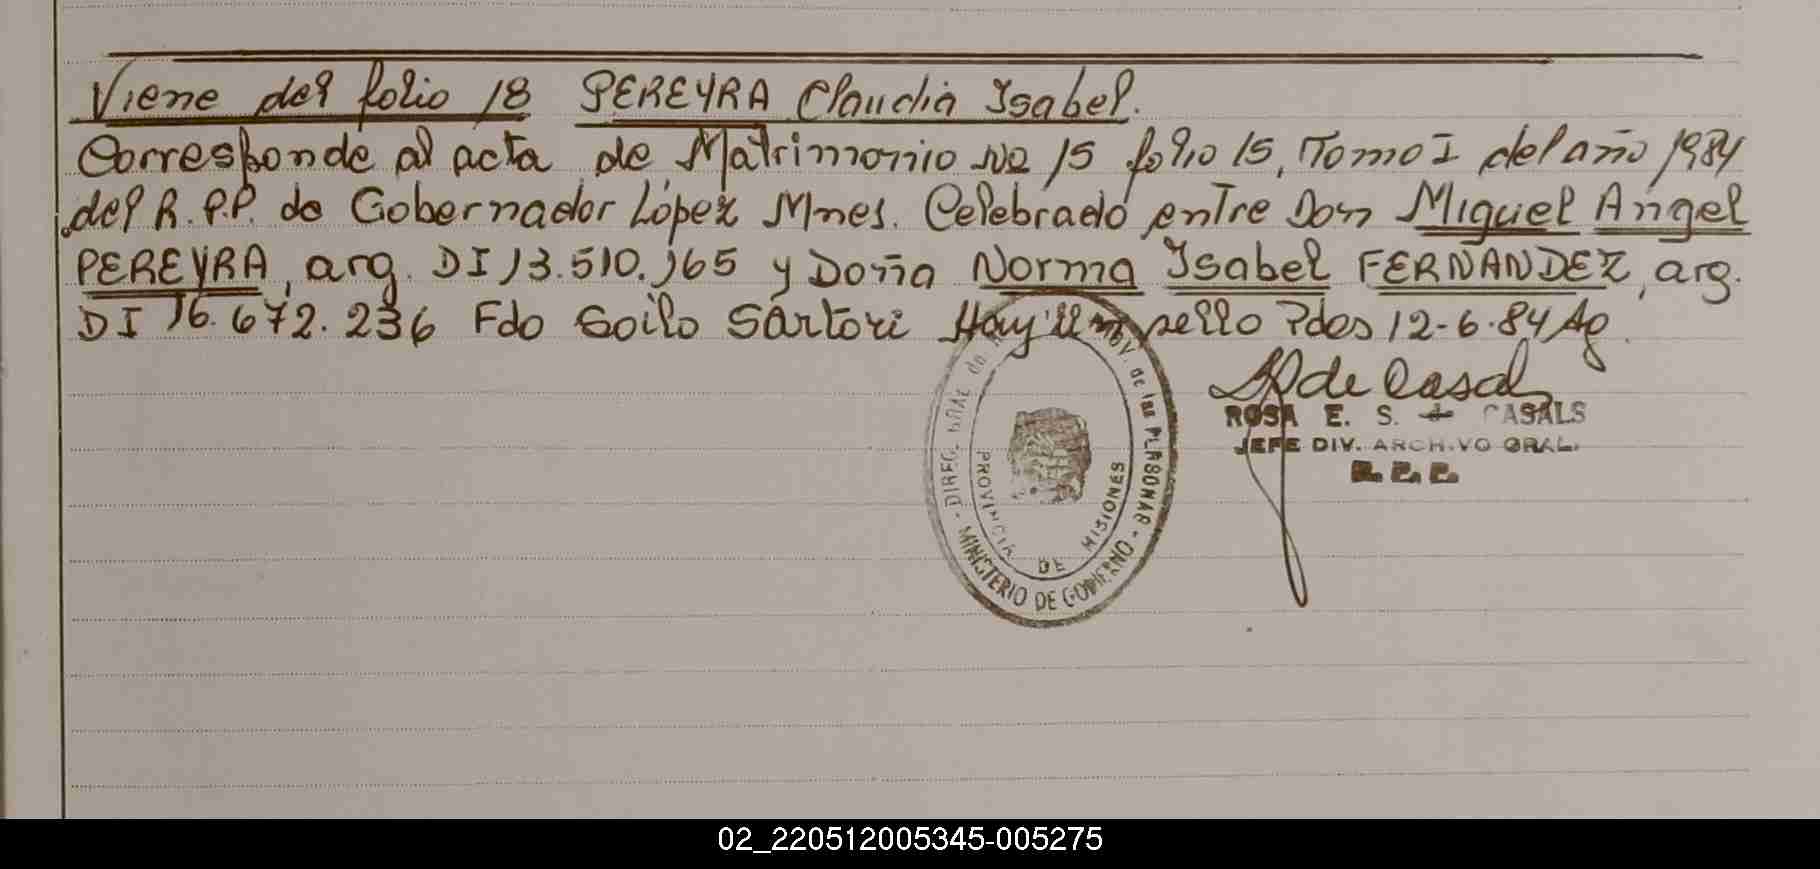 Viene del folio 18 PEREYRA Claudia Isabel.
Corresponde al acta de Matrimonio Nº 15 folio 15, Tomo I del año 1984
del R.P.P. de Gobernador López Mnes. Celebrado entre Don Miguel Angel
PEREYRA, arg. DI 13.510.165 y Doña Norma Isabel FERNANDEZ, arg.
DI 16.672.236 Fdo Soilo Sartori Hay un sello Pdes 12-6-84 Ag.
de Casals
ROSA E. S. de CASALS
JEFE DIV. ARCHIVO GRAL.
DIREC. GRAL de las PERSONAS
MINISTERIO DE GOBIERNO
PROVINCIA DE MISIONES
02_220512005345-005275